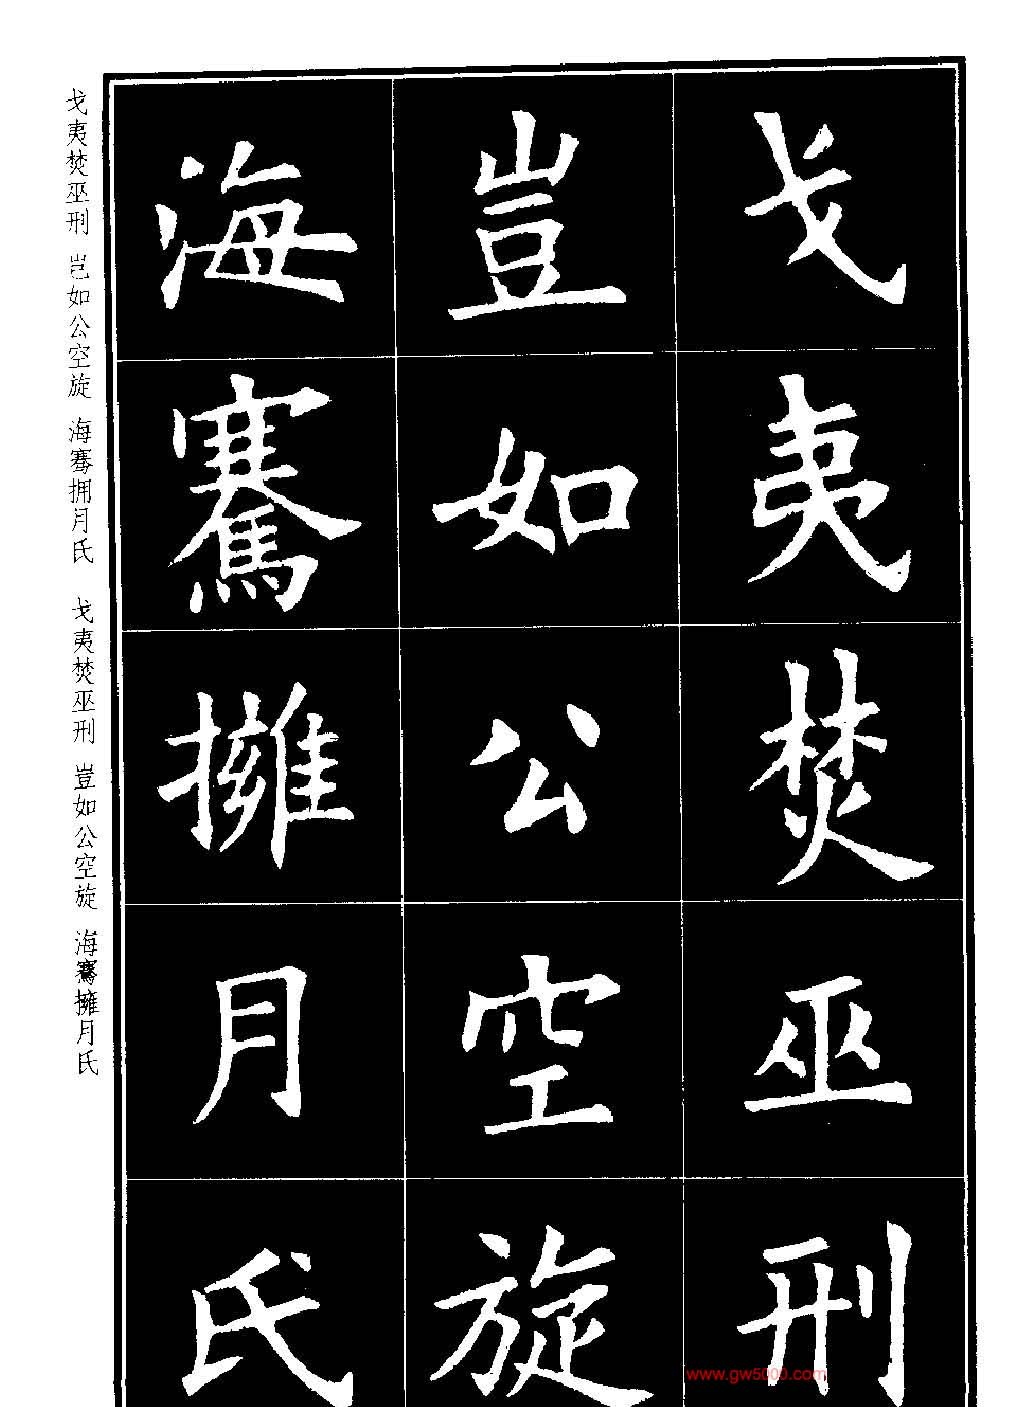 戈夷焚巫刑
豈如公空旋
海騫擁月氏
戈夷焚巫刑 岂如公空旋 海骞拥月氏 戈夷焚巫刑 豈如公空旋 海騫擁月氏
www.gw5000.com